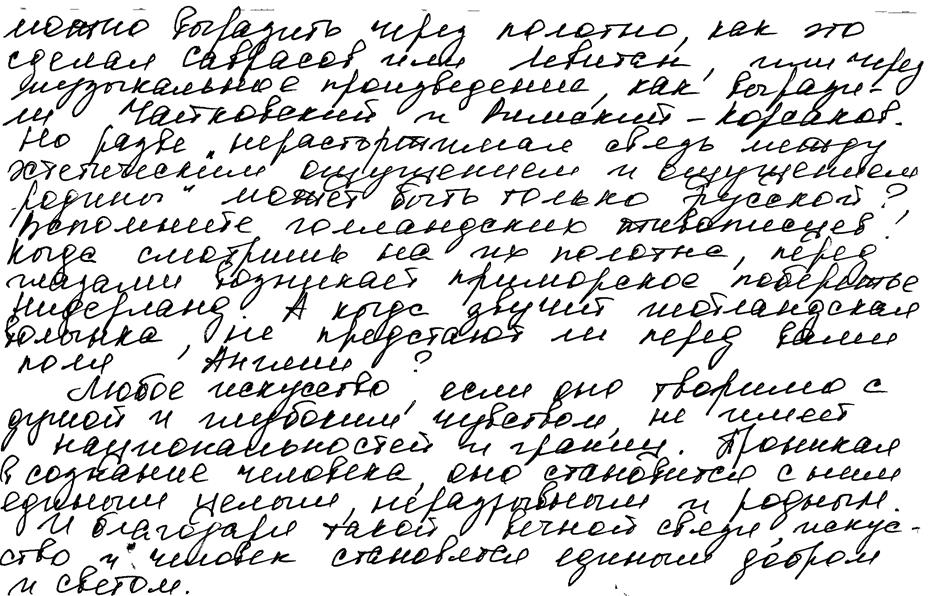 можно выразить через полотно, как это
сделал Саврасов или Левитан, или через
музыкальное произведение, как вырази-
ли Чайковский и Римский-Корсаков.
Но разве „нерасторжимая связь между
эстетическим ощущением и ощущением
родины“ может быть только русской?
Вспомните голландских живописцев!
Когда смотришь на их полотна, перед
глазами возникает приморское побережье
Нидерланд. А когда звучит шотландская
волынка, не предстают ли перед вами
поля Англии?
Любое искусство, если оно творимо с
душой и глубоким чувством, не имеет
национальностей и границ. Проникая
в сознание человека, оно становится с ним
единым целым, неразрывным и родным.
И благодаря такой вечной связи, искус-
ство и человек становятся единым добром
и светом.